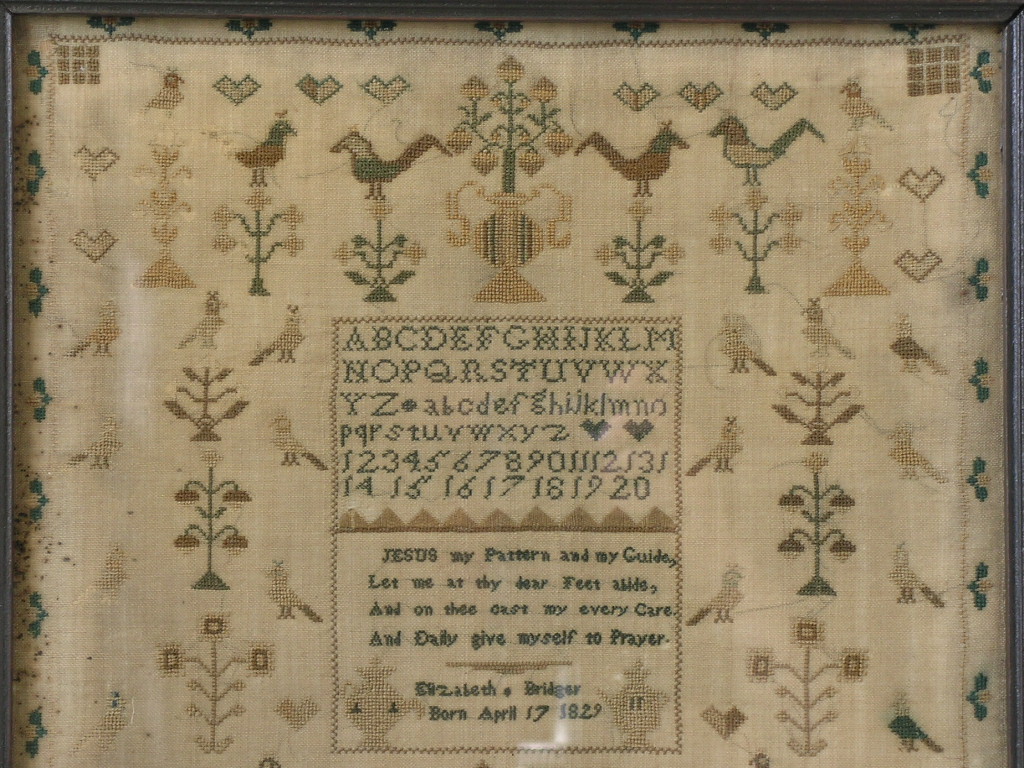 ABCDEFGHIJKLM
NOPQRSTUVWX
YZ abcdefghijklmno
pqrstuvwxyz
12345678901112131
14 15 16 17 18 19 20
JESUS my Pattern and my Guide,
Let me at thy dear Feet abide,
And on thee cast my every Care.
And Daily give myself to Prayer.
Elizabeth Bridger
Born April 17 1829